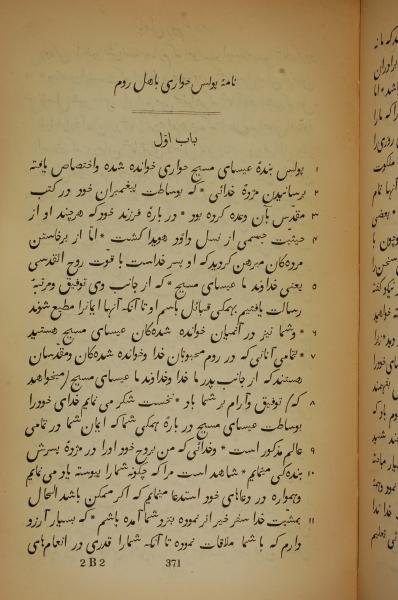 نامهٔ پولس حواری باهل روم
باب اوّل
۱ پولس بندهٔ عیسای مسیح حواری خوانده شده و اختصاص یافته
۲ برسانیدن مژدهٔ خدائی * که بوساطت پیغمبران خود در کتب
۳ مقدّس بآن وعده کرده بود * در بارهٔ فرزند خود که هرچند او از
۴ حیثیّت جسمی از نسل داود هویدا گشت * امّا از برخاستن
مرده‌کان مبرهن گردید که او پسر خداست با قوّت روح القدسی
۵ یعنی خداوند ما عیسای مسیح * که از جانب وی توفیق و مرتبهٔ
رسالت یافتیم بهمگی قبائل باسم او تا آنکه آنها ایمانرا مطیع شوند
۶ * و شما نیز در آنمیان خوانده شده‌کان عیسای مسیح هستید
۷ * بتمامی آنانی که در روم محبوبان خدا و خوانده شده‌کان و مقدّسان
هستند که از جانب پدر ما خدا و خداوند ما عیسای مسیح (میخواهد
۸ که) توفیق و آرام بر شما باد * نخست شکر می نمایم خدای خودرا
بوساطت عیسای مسیح در بارهٔ همگی شما که ایمان شما در تمامی
۹ عالم مذکور است * و خدائی که من بروح خود اورا در مژدهٔ پسرش
۱۰ بنده‌کی مینمایم * شاهد است مرا که چگونه شمارا پیوسته یاد می نمایم
و همواره در دعاهای خود استدعا مینمایم که اگر ممکن باشد الحال
۱۱ بمشیّت خدا سفر خیر اثر نموده بنزد شما آمده باشم * که بسیار آرزو
دارم که با شما ملاقات نموده تا آنکه شمارا قدری در انعامهای
2 B 2 371